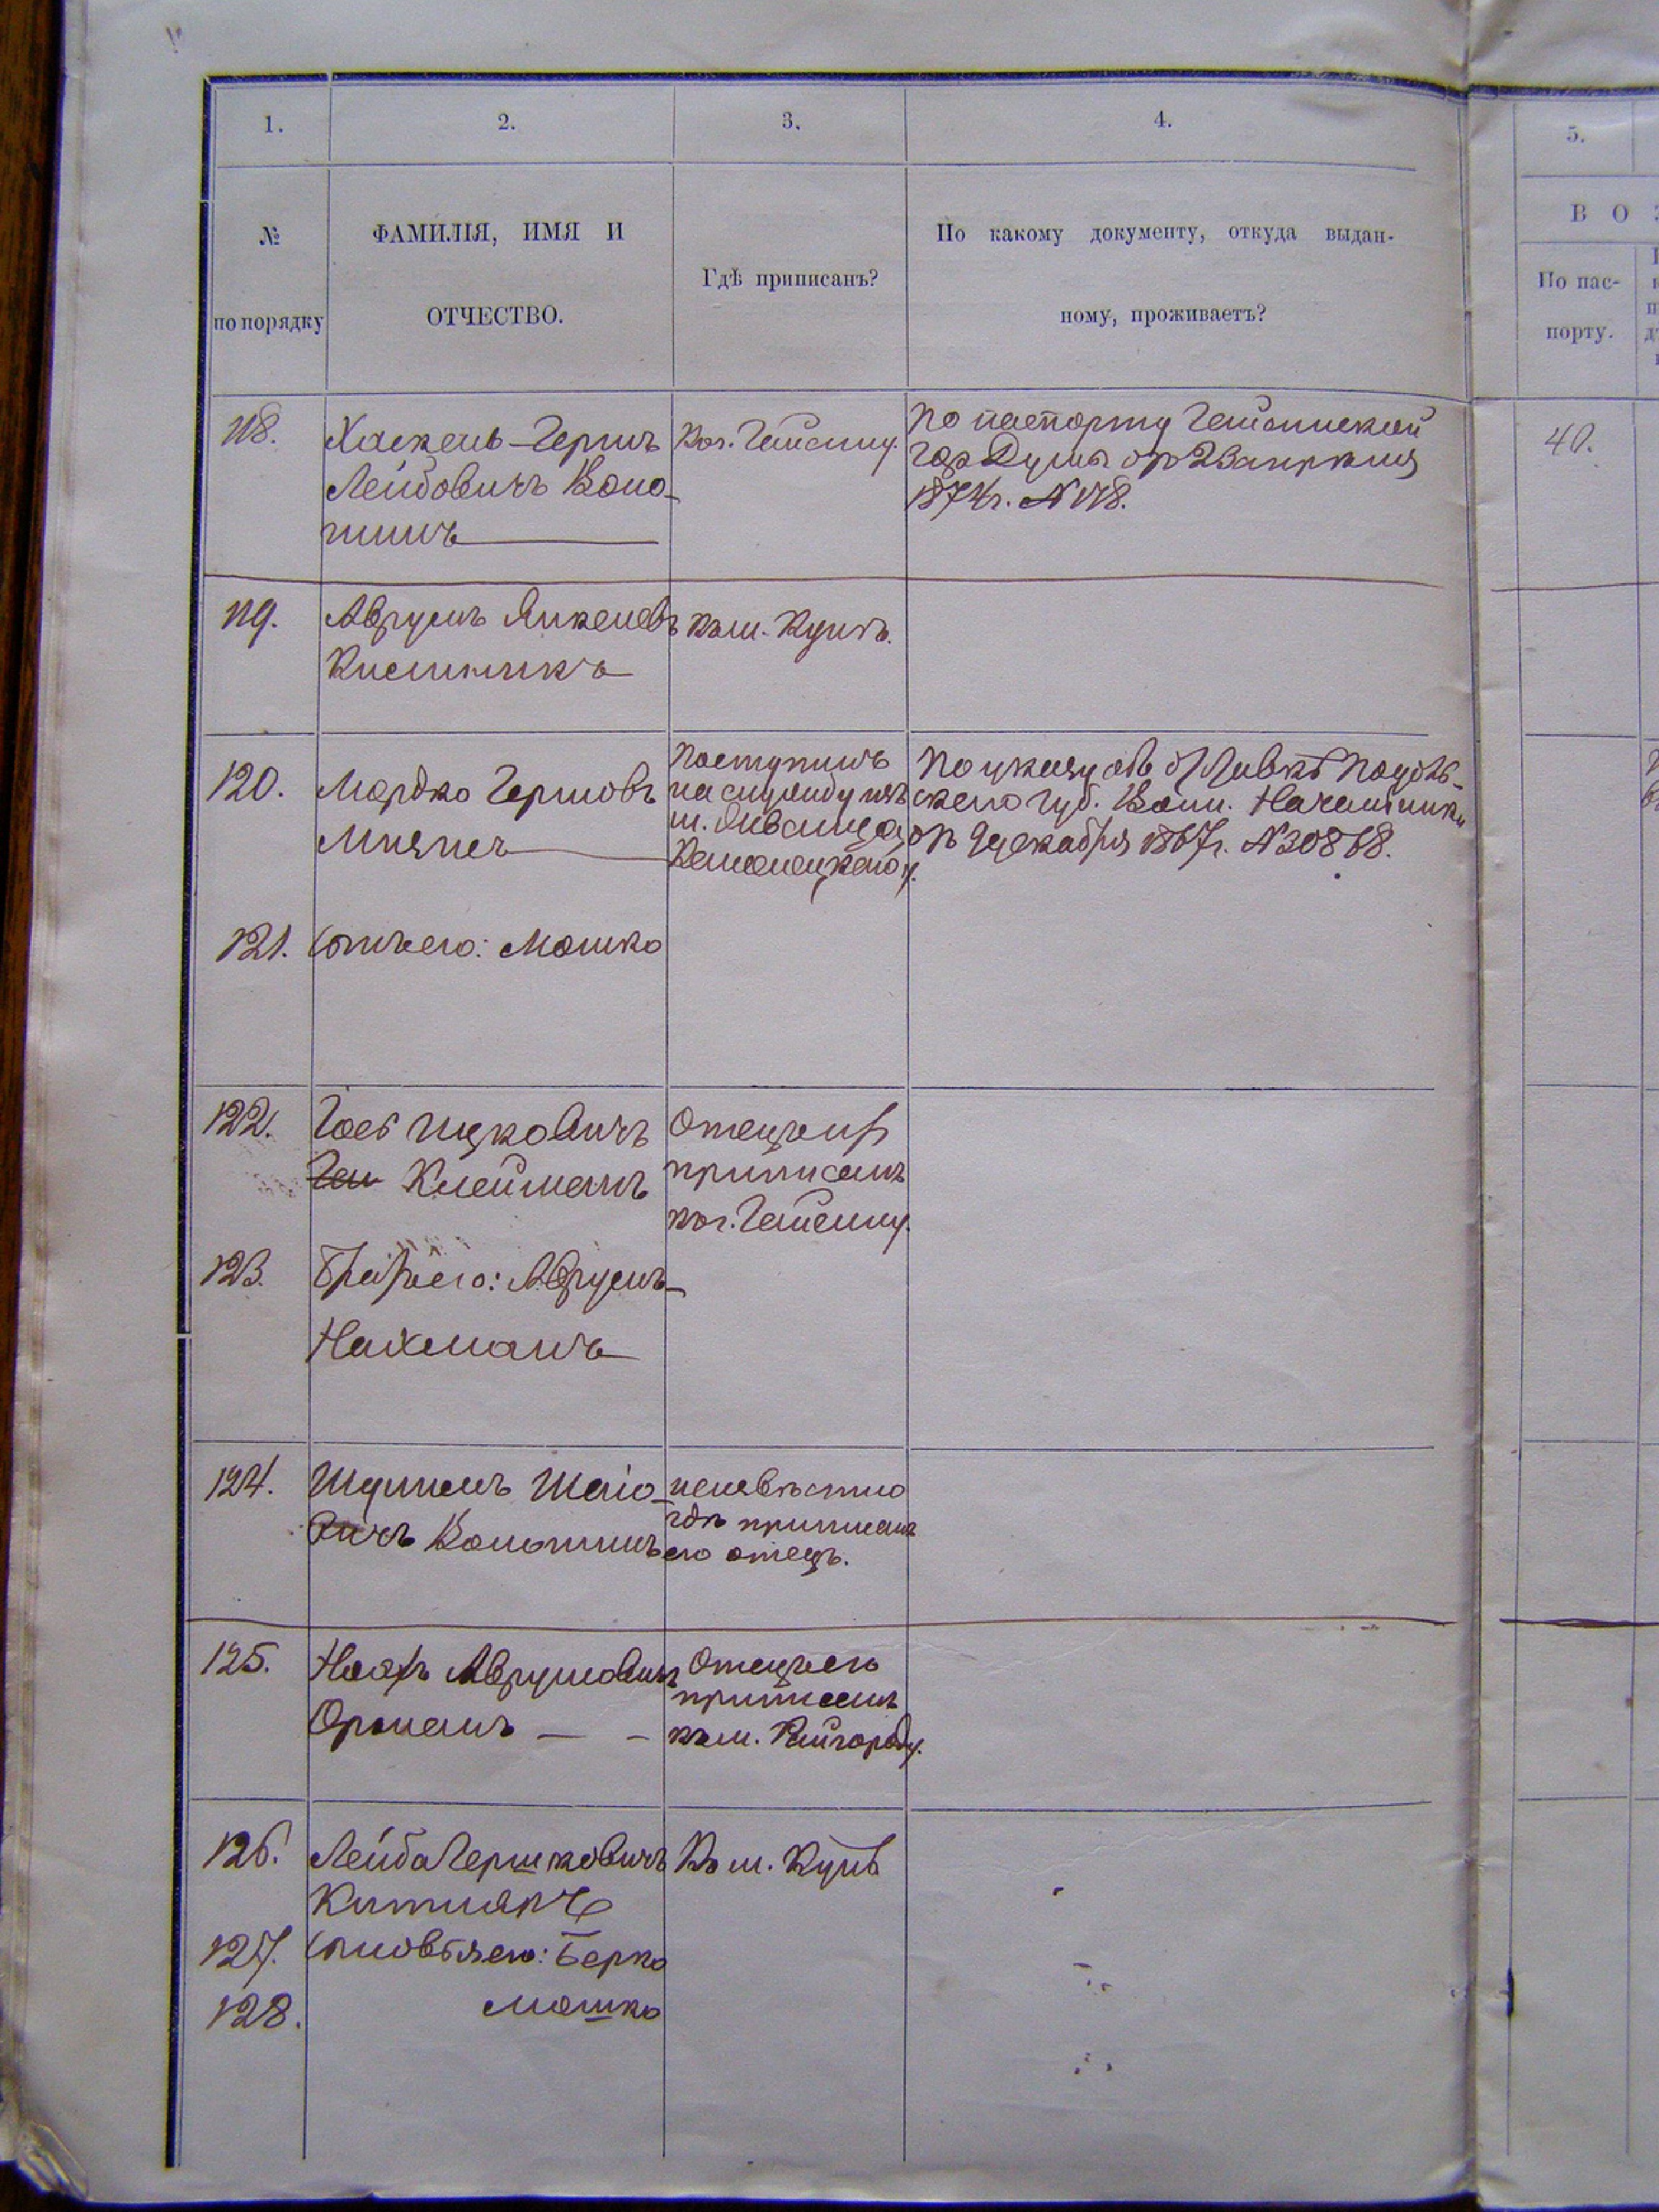 1. 2. 3. 4. 5.
№
по порядку
ФАМИЛІЯ, ИМЯ И
ОТЧЕСТВО.
Гдѣ приписанъ?
По какому документу, откуда выдан-
ному, проживаетъ?
В О
По пас-
порту.
118.
Хаскель-Гершъ
Лейбовичъ Воло-
шинъ
Къ г. Гайсину.
По паспорту Гайсинской
Гор Думы отъ 2 Апрѣля
1874 г. № 178.
40.
119.
Аврумъ Янкелевъ
Кисильникъ
Къ м. Кунѣ.
120.
Мордко Гершовъ
Поступилъ
на службу изъ
м. Жванца,
Каменецкаго у.
По указу объ отставкѣ Подоль-
скаго Губ. Воин. Начальника
отъ 9 декабря 1867 г. № 30868.
121.
Сынъ его: Мошко
122.
Іось Ицковичъ
Клейманъ
Отецъ его
приписанъ
къ г. Гайсину.
123.
Братъ его: Аврумъ-
Нахманъ
124.
Шулимъ Шаіо-
вичъ Волошинъ
неизвѣстно
гдѣ приписанъ
его отецъ.
125.
Ноахъ Аврумовичъ
Орманъ
Отецъ его
приписанъ
къ м. Райгороду.
126.
Лейба Гершковичъ
Къ м. Кунѣ
127.
Сыновья его: Берко
128.
Мошко